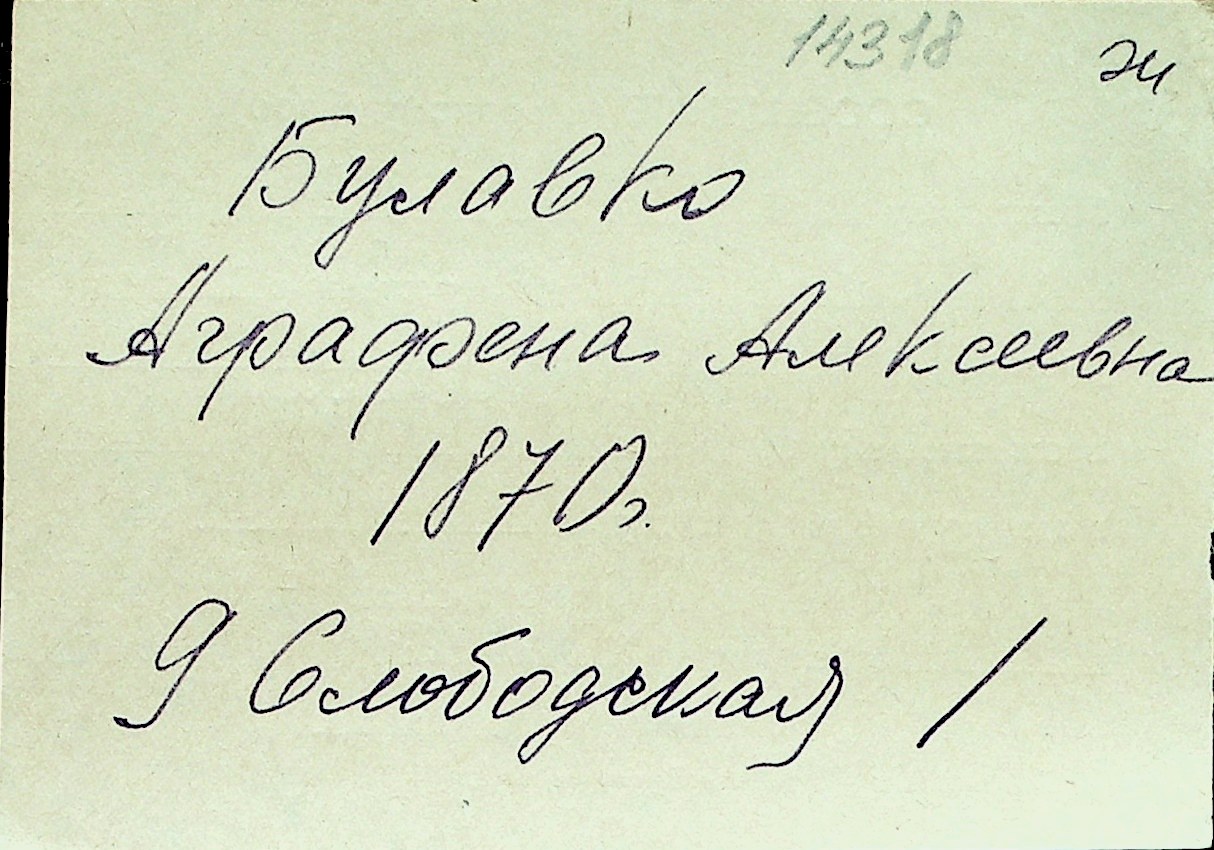 14318 ж
Булавко
Аграфена Алексеевна
1870г.
9 Слободская 1